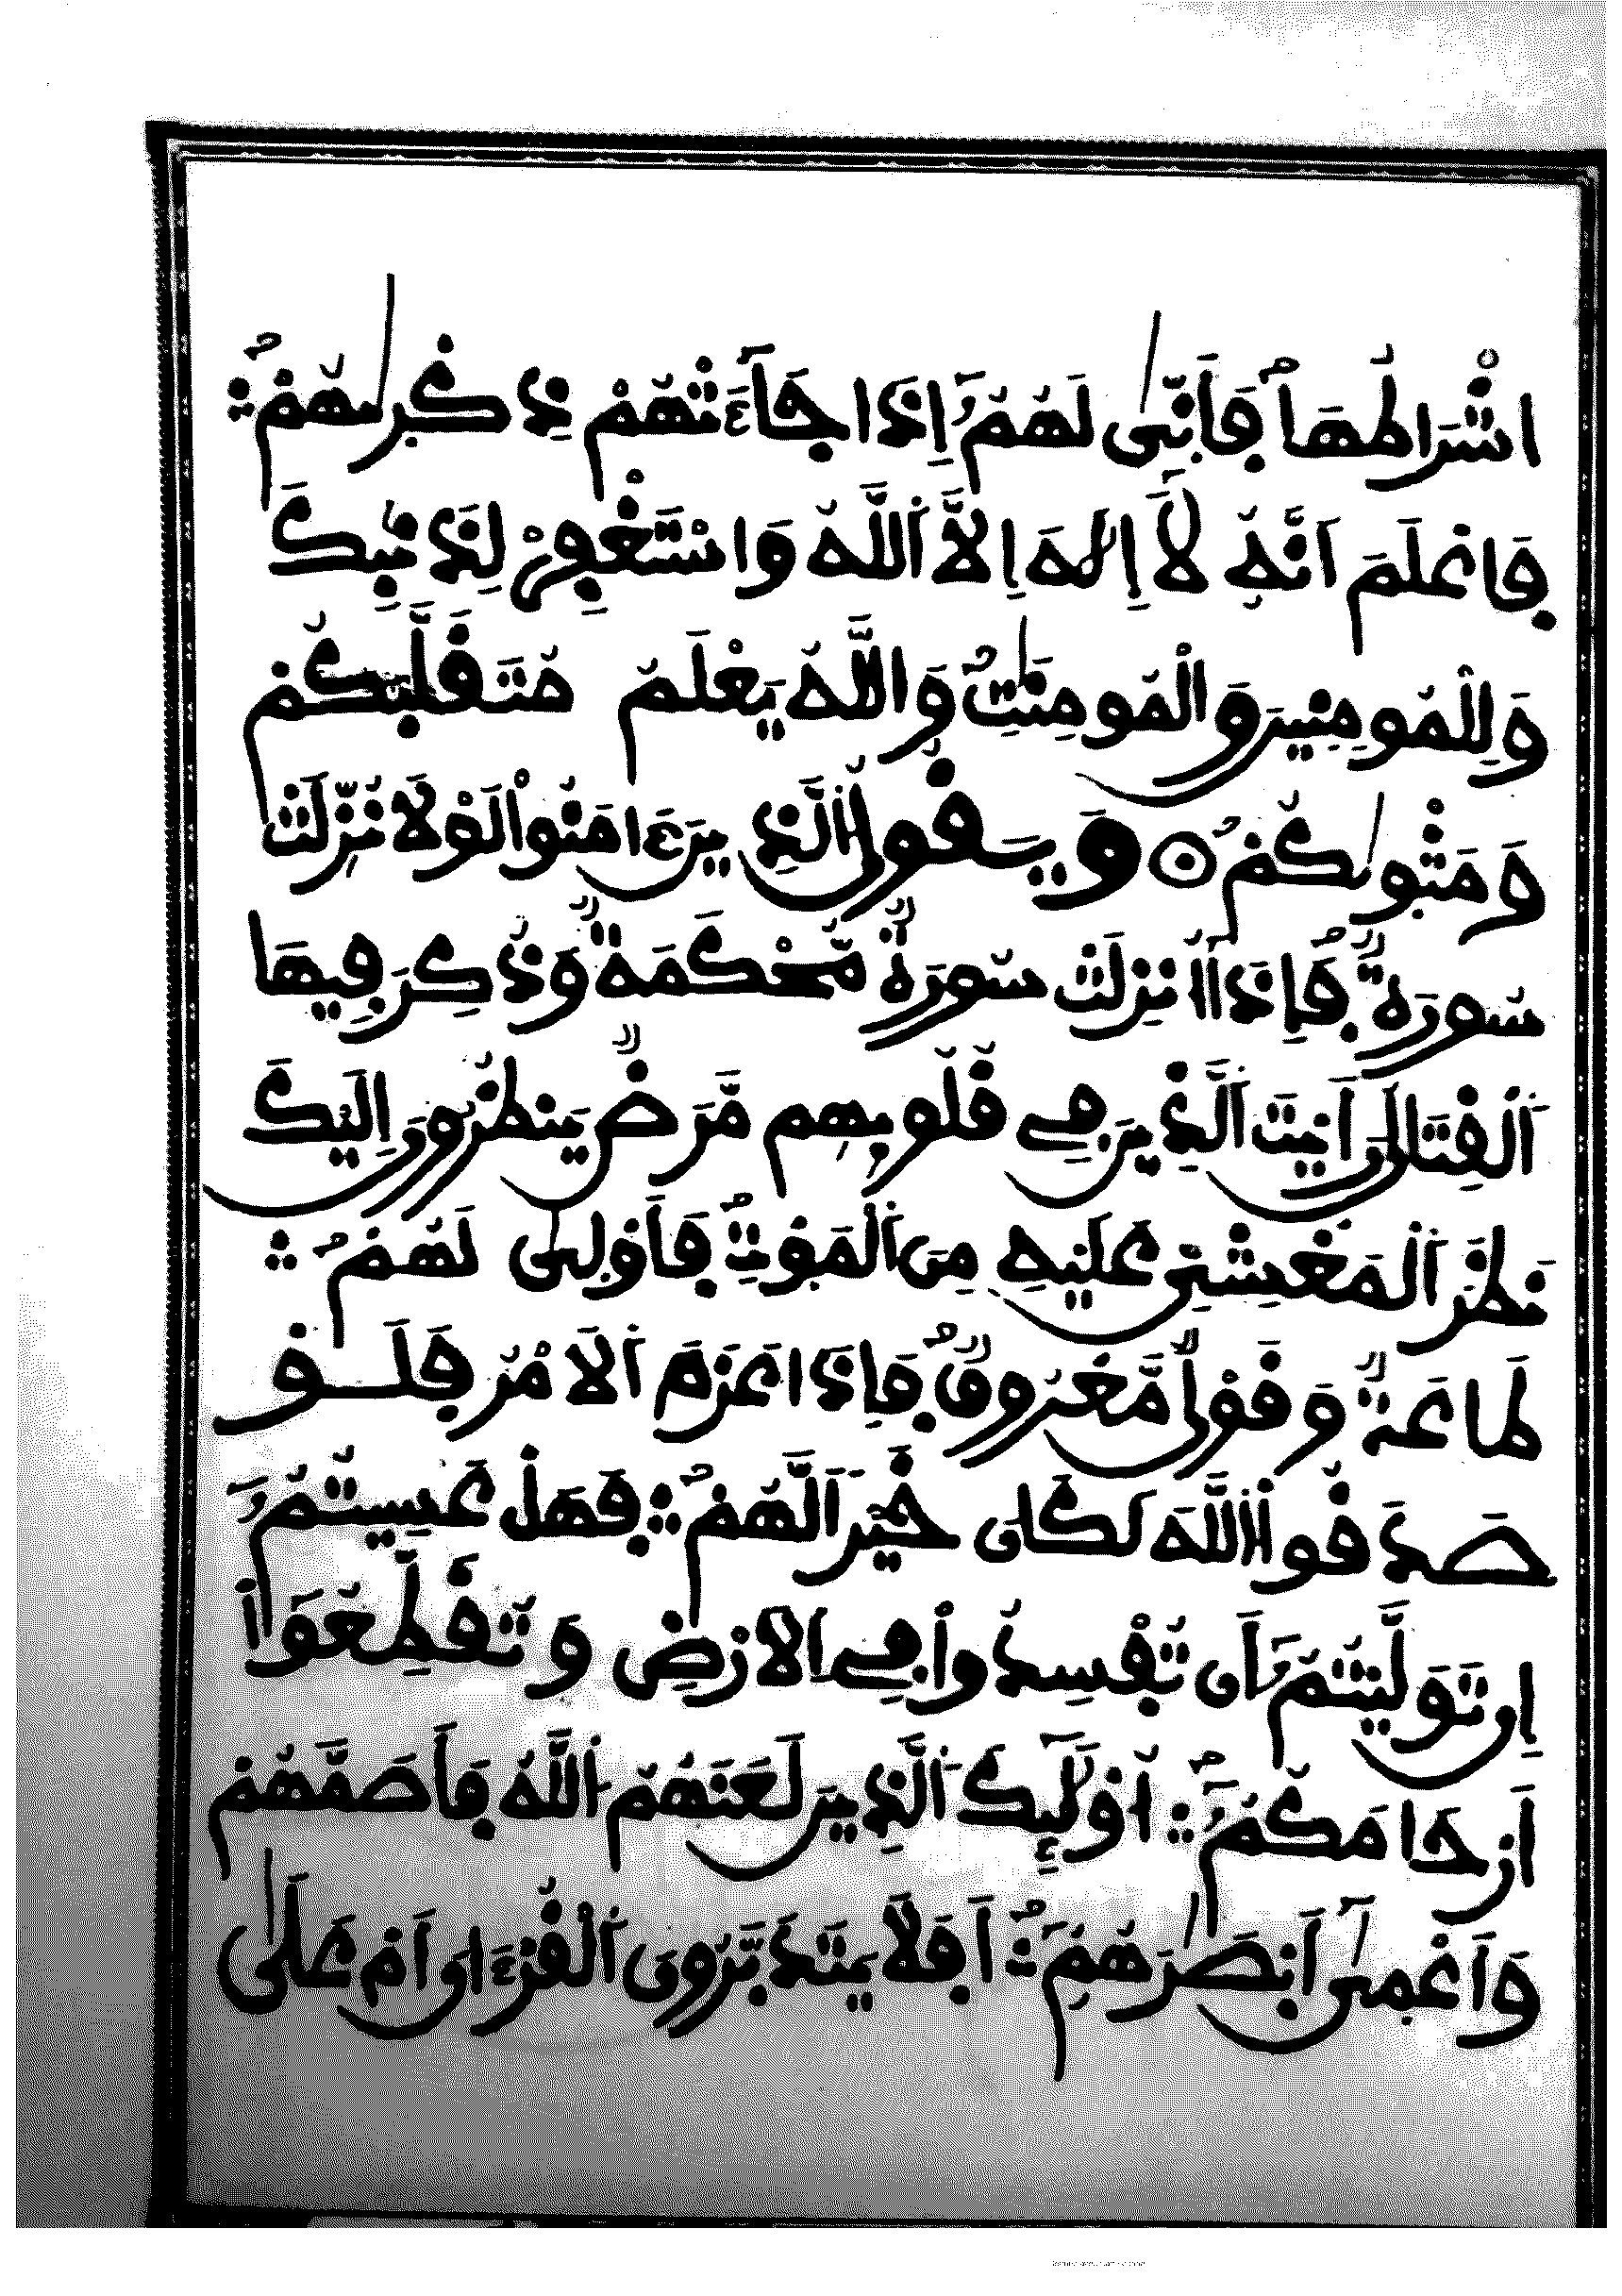 اشْرَاطُهَا فَأَنّٰى لَهُمُۥٓ إِذَا جَآءَتْهُمْ ذِكْرٰىهُمْ
فَاعْلَمَ اَنَّهُ لَآ إِلَٰهَ إِلَّا اَللَّهُ وَاسْتَغْفِرْ لِذَنۢبِكَ
وَلِلْمُومِنِينَ وَالْمُومِنَٰتِ وَاللَّهُ يَعْلَمُ مُتَقَلَّبَكُمْ
وَمَثْوٰىكُمْ وَيَقُولُ اُلَّذِينَ ءَامَنُواْ لَوْلَا نُزِّلَتْ
سُورَةٌ فَإِذَآ أُنزِلَتْ سُورَةٌ مُّحْكَمَةٌ وَذُكِرَ فِيهَا
اَلْقِتَالُ رَأَيْتَ اَلَّذِينَ فِي قُلُوبِهِم مَّرَضٌ يَنظُرُونَ إِلَيْكَ
نَظَرَ اَلْمَغْشِيِّ عَلَيْهِ مِنَ اَلْمَوْتِ فَأَوْلٰى لَهُمْ
طَاعَةٌ وَقَوْلٌ مَّعْرُوفٌ فَإِذَا عَزَمَ اَلَامْرُ فَلَوْ
صَدَقُواْ اُللَّهَ لَكَانَ خَيْرًا لَّهُمْ فَهَلْ عَسِيتُمُۥٓ
إِن تَوَلَّيْتُمُۥٓ أَن تُفْسِدُواْ فِي اِلَارْضِ وَتُقَطِّعُوٓاْ
أَرْحَامَكُمُۥٓ أُوْلَٰٓئِكَ اَلَّذِينَ لَعَنَهُمُ اُللَّهُ فَأَصَمَّهُمْ
وَأَعْمٰىٓ أَبْصَٰرَهُمُۥٓ أَفَلَا يَتَدَبَّرُونَ اَلْقُرْءَانَ أَمْ عَلٰى